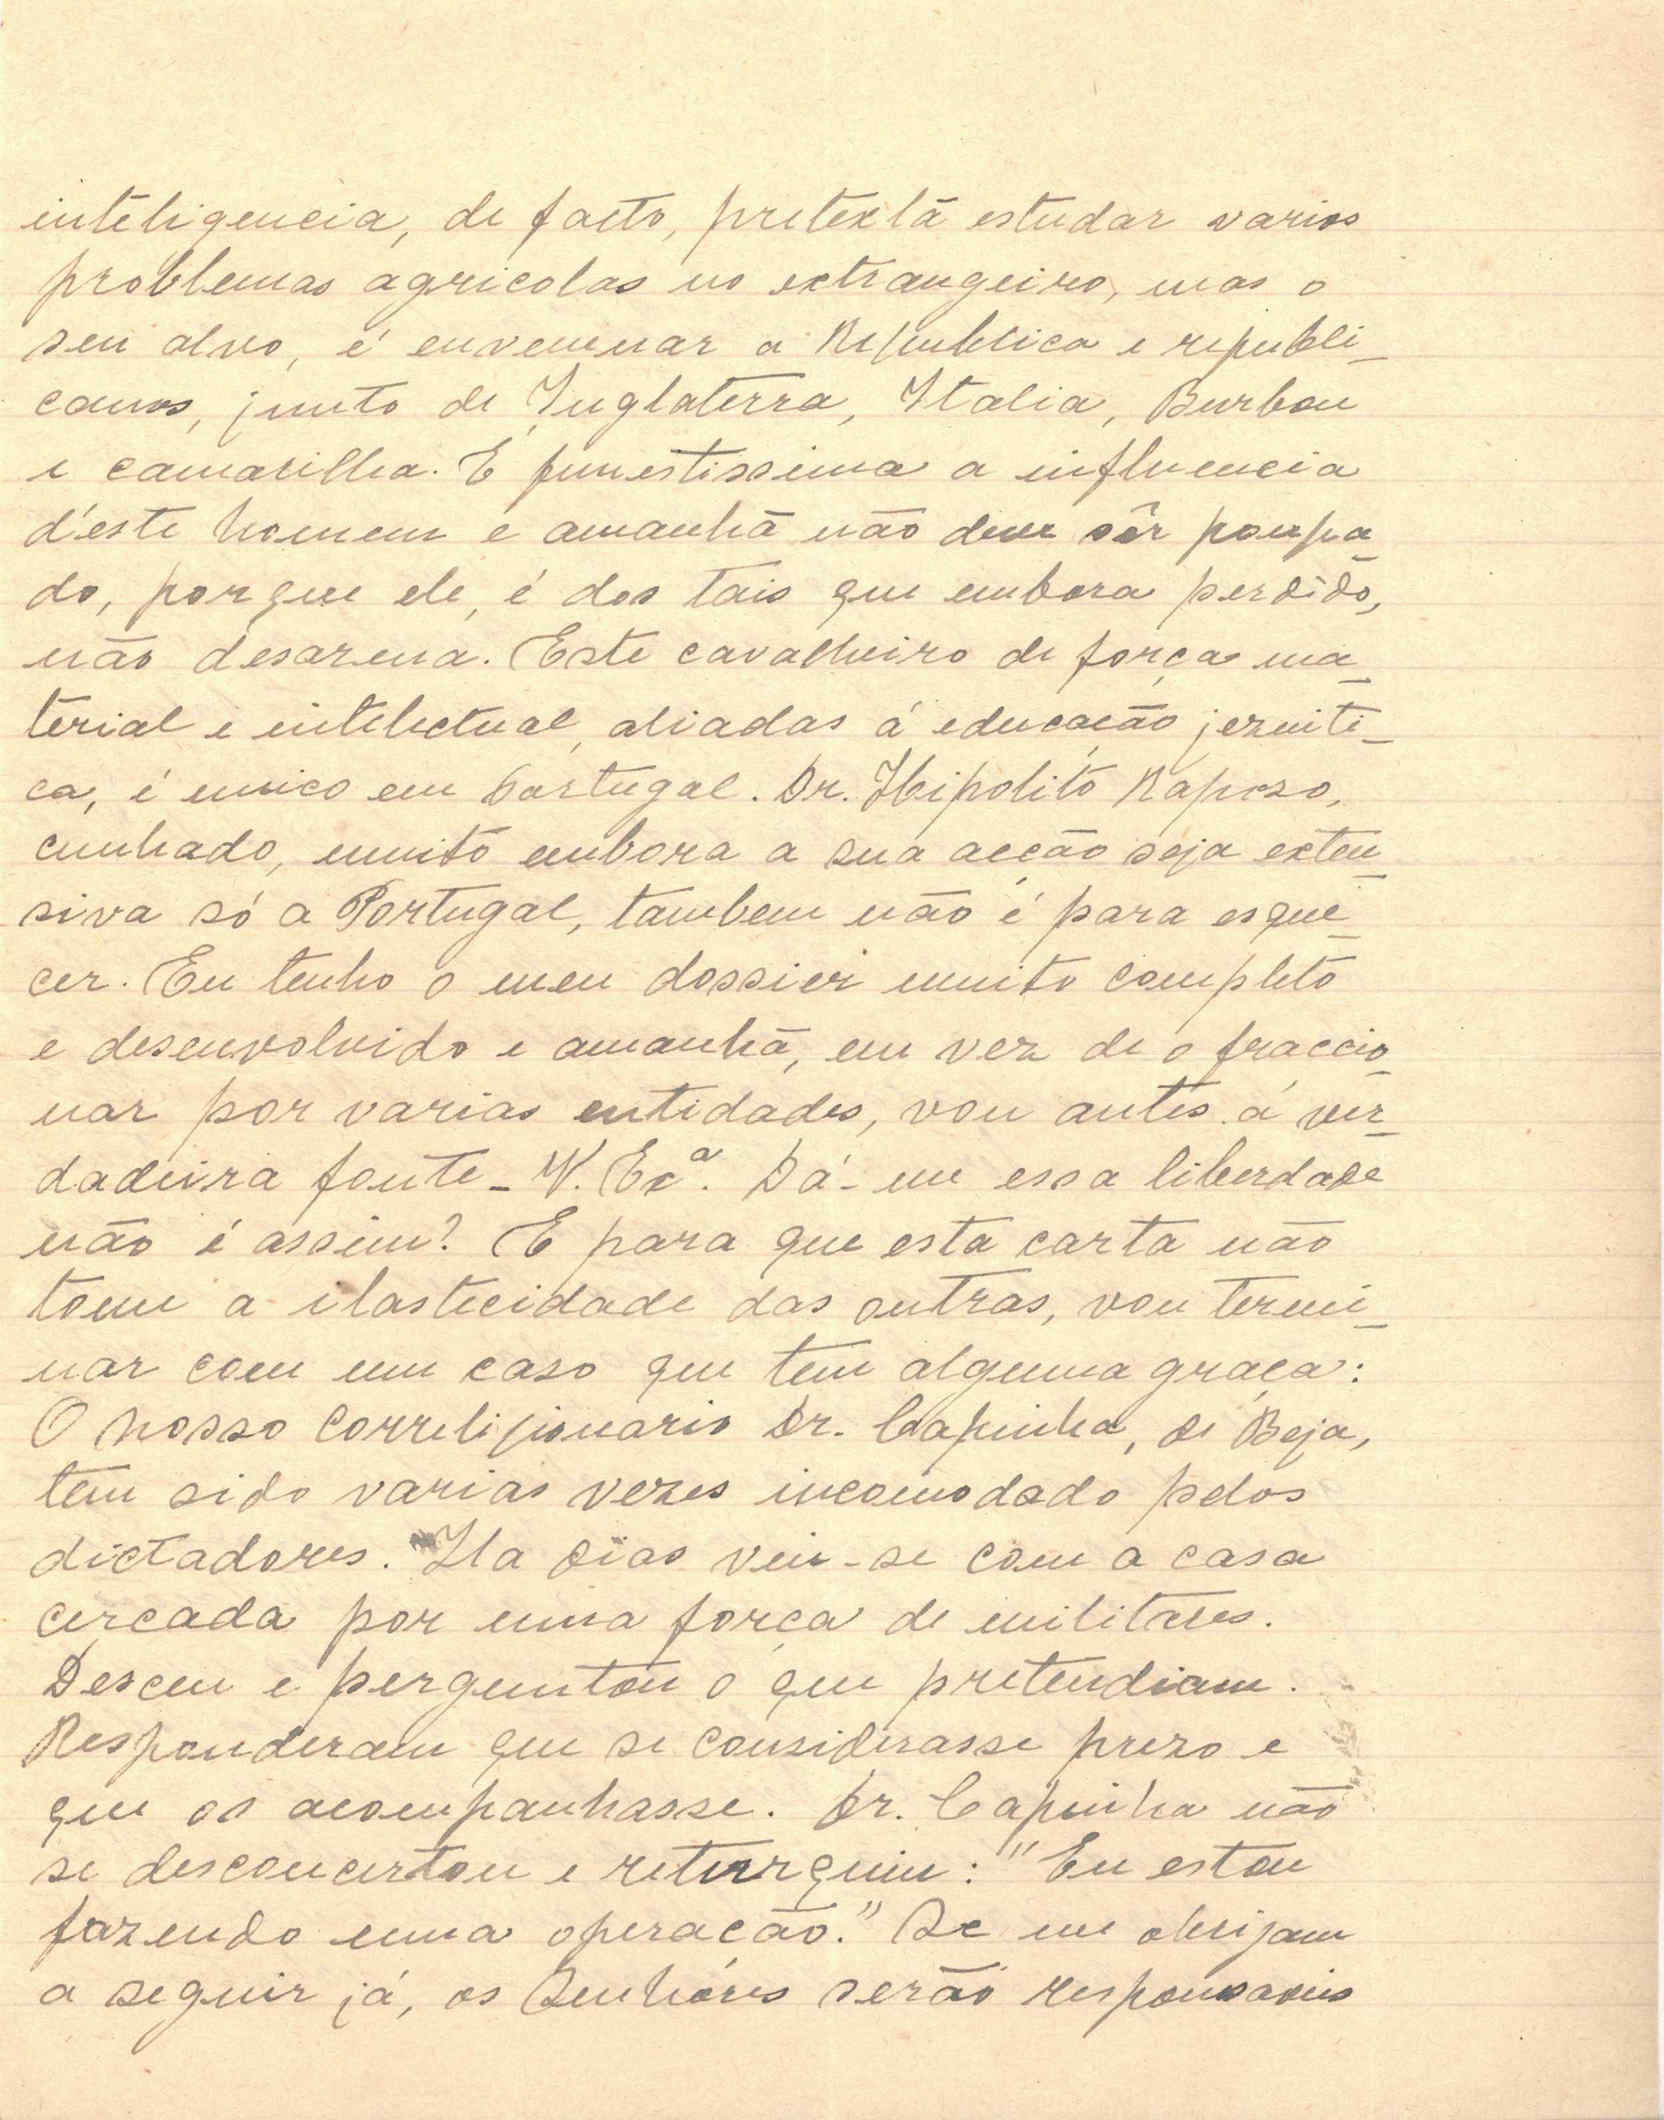 inteligencia, de facto, pretextã estudar varios
problemas agricolas no extrangeiro, mas o
seu alvo, é envenenar a Republica e republi_
canos, junto de Inglaterra, Italia, Burbon
e camarilha. E funestissima a influencia
d'este homem e amanhã não deve sêr poupa_
do, porque ele, é dos tais que embora perdido,
não desarma. Este cavalheiro de forças ma_
terial e intelectual, aliadas á educação jezuiti_
ca, é unico em Portugal. Dr. Hipolito Rapozo,
cunhado, muito embora a sua acção seja exten_
siva só a Portugal, tambem não é para esque_
cer. Eu tenho o meu dossier muito completo
e desenvolvido e amanhã, em vez de o fraccio_
nar por varias entidades, vou antes á ver_
dadeira fonte - V. Exª. Dá-me essa liberdade
não é assim? E para que esta carta não
tome a elasticidade das outras, vou termi_
nar com um caso que tem alguma graça:
O nosso correligionario Dr. Capinha, de Beja,
tem sido varias vezes incomodado pelos
dictadores. Ha dias viu-se com a casa
cercada por uma força de militares.
Desceu e perguntou o que pretendiam.
Responderam que se considerasse prezo e
que os acompanhasse. Dr. Capinha não
se desconcertou e returquiu: "Eu estou
fazendo uma operação." Se me obrigam
a seguir já, os Senhôres serão responsaveis